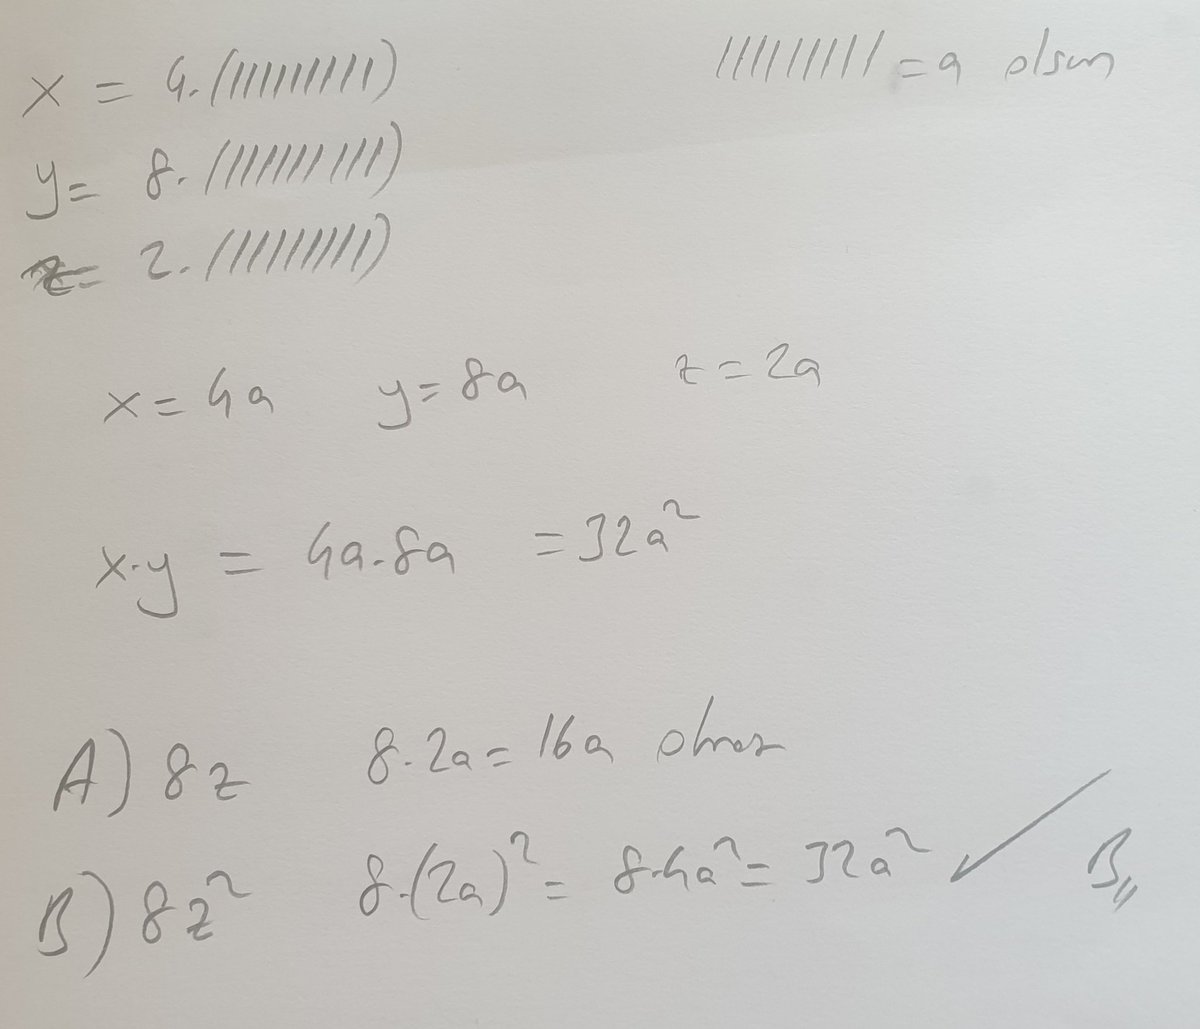 x = 4.(111111111)    111111111 = a olsun
y = 8.(111111111)
z = 2.(111111111)
x = 4a    y = 8a    z = 2a
x.y = 4a.8a = 32a²
A) 8z    8.2a = 16a olmaz
B) 8z²    8.(2a)² = 8.4a² = 32a² ✓    B//